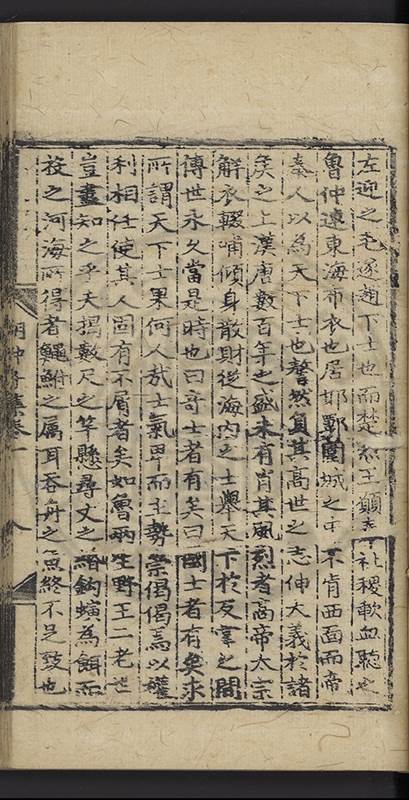 左迎之毛遂趙下士也而楚烈王願去社稷歃血聽之
魯仲連東海布衣也居邯鄲圍城之中不肯西面而帝
秦人以為天下士也謷然負其高世之志伸大義於諸
矦之上漢唐數百年之盛未有肖其風烈者高帝太宗
解衣輟哺傾身散財從海內之士舉天下於反掌之間
傳世永久當是時也曰奇士者有矣曰國士者有矣求
所謂天下士果何人哉士氣卑而主勢崇偈偈焉以權
利相任使其人固有不屑者矣如魯兩生野王二老世
豈盡知之乎夫揭數尺之竿縣尋丈之緡鉤螾為餌而
投之河海所得者鰋鮒之属耳吞舟之魚終不足致也
胡仲子集卷一
八